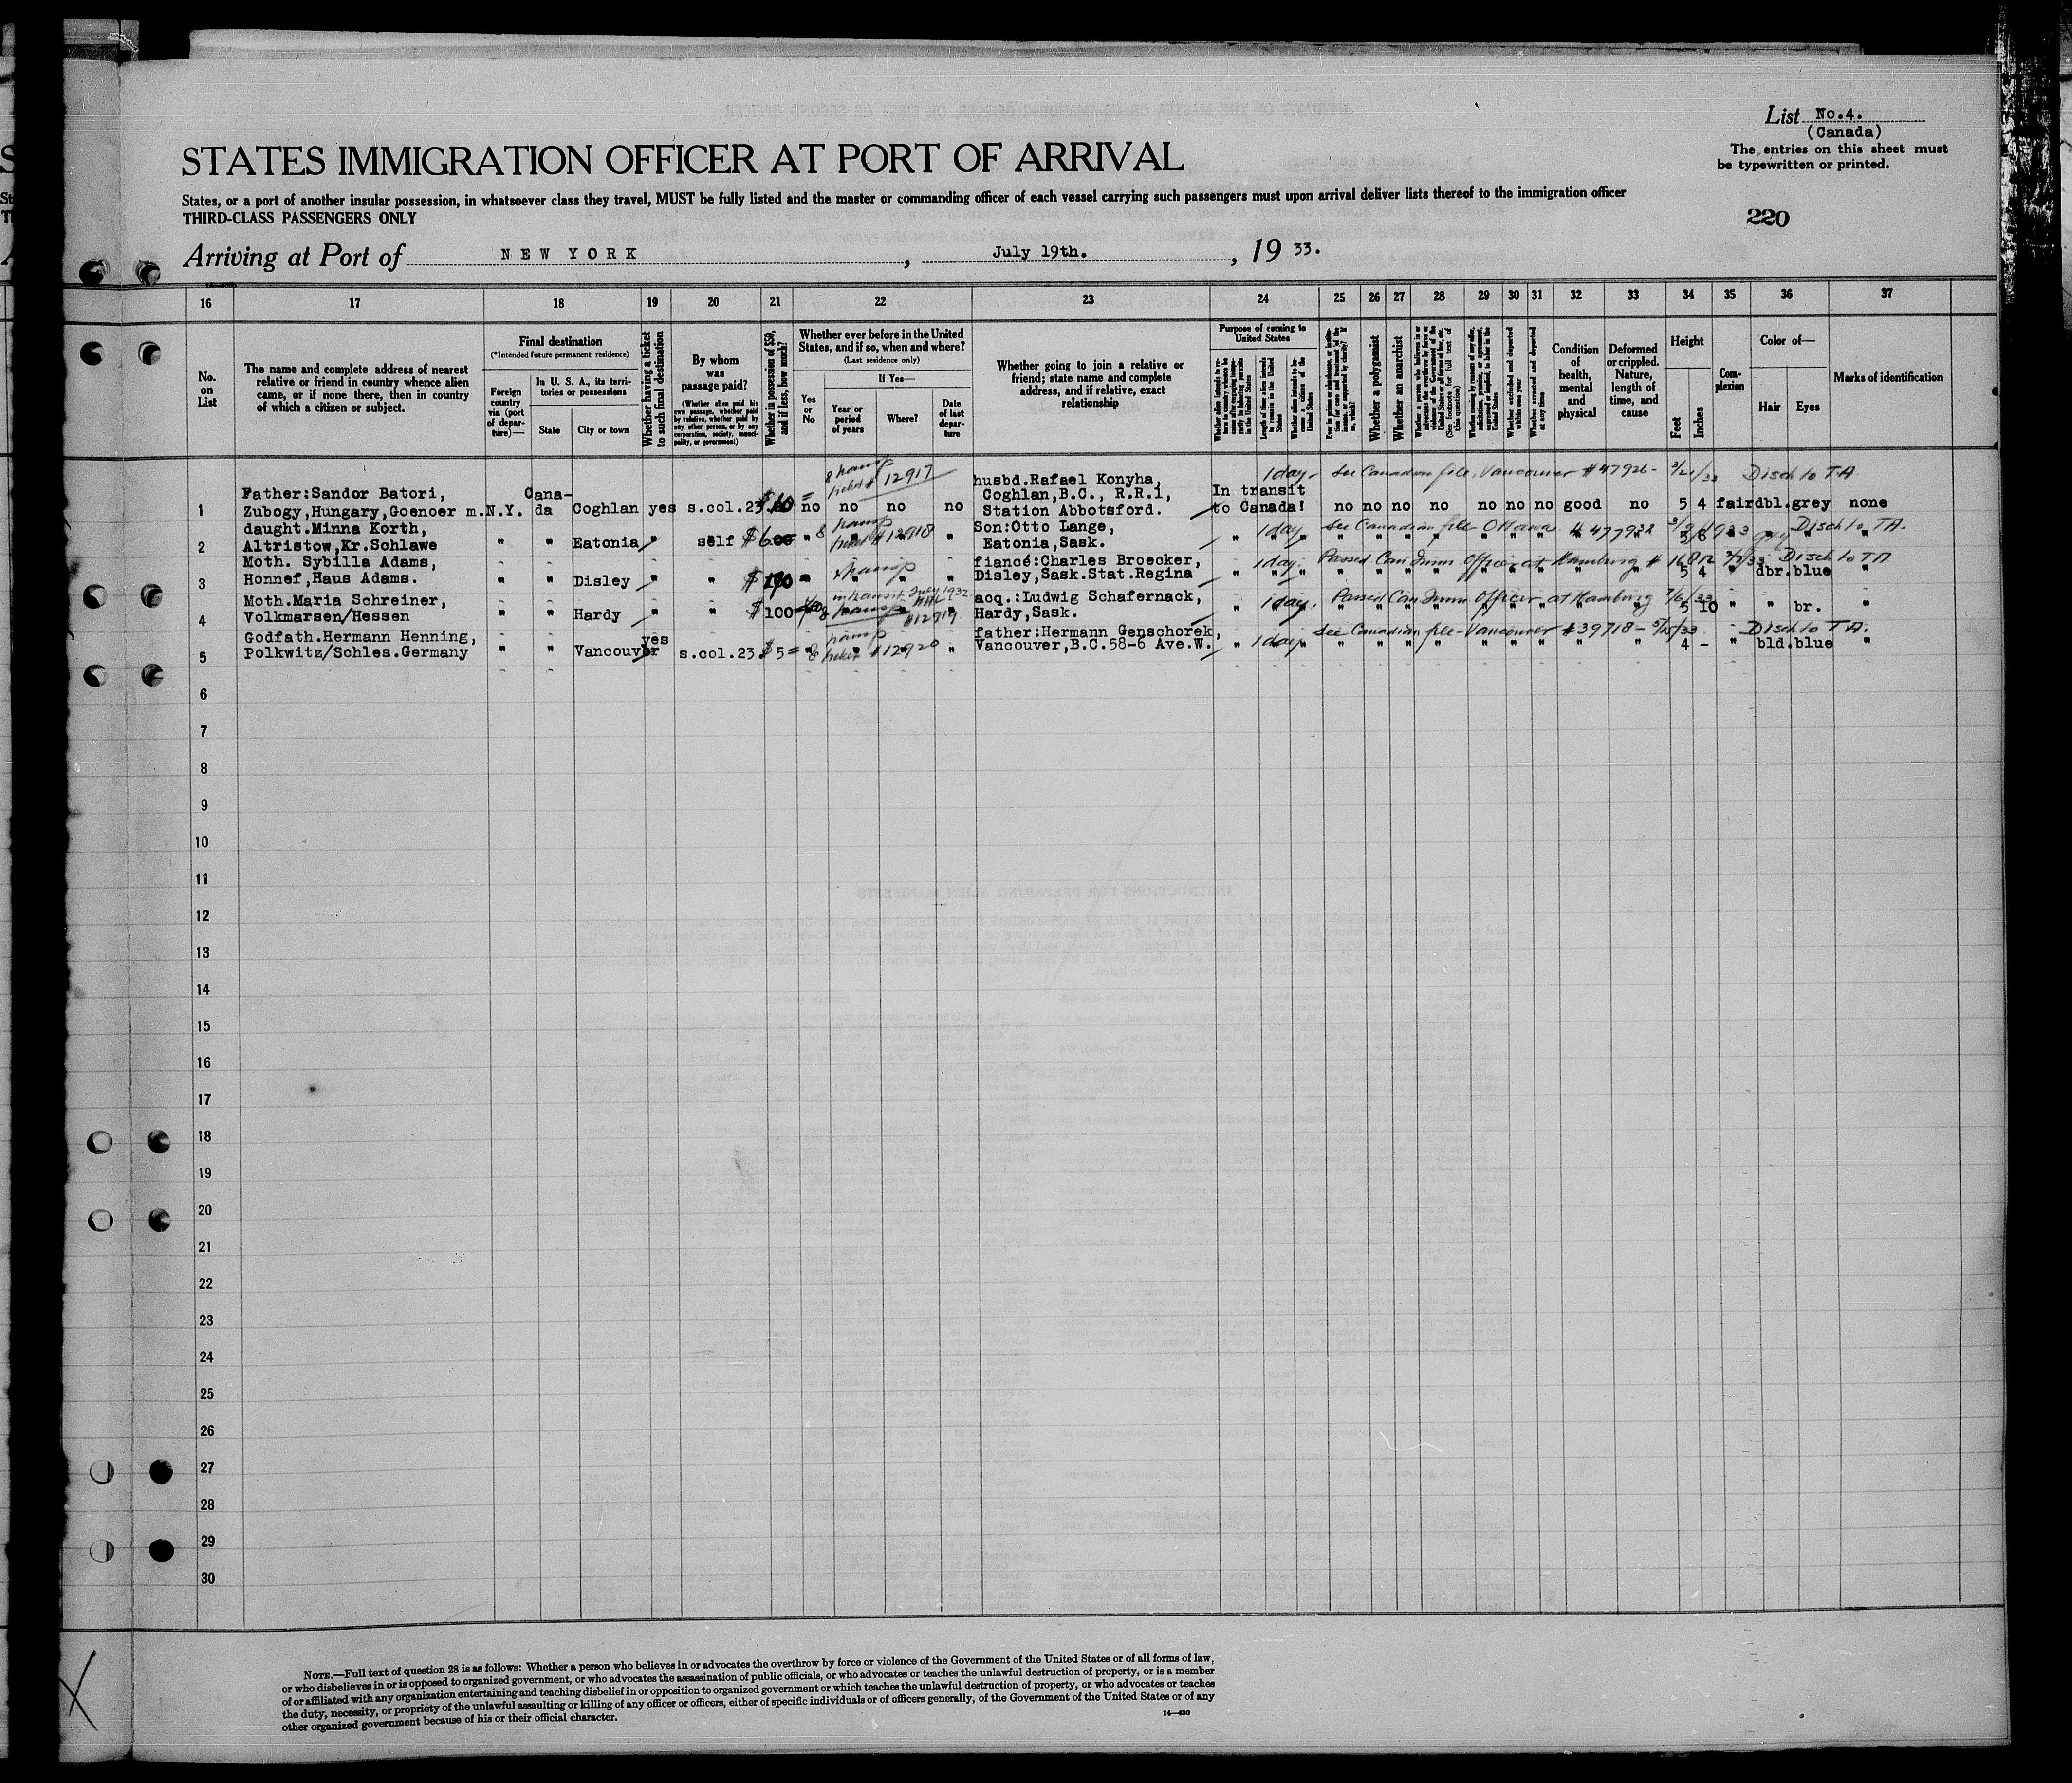 List No.4.
(Canada)
The entries on this sheet must
be typewritten or printed.
STATES IMMIGRATION OFFICER AT PORT OF ARRIVAL
States, or a port of another insular possession, in whatsoever class they travel, MUST be fully listed and the master or commanding officer of each vessel carrying such passengers must upon arrival deliver lists thereof to the immigration officer
THIRD-CLASS PASSENGERS ONLY
220
Arriving at Port of NEW YORK, July 19th., 19 33.
16 17 18 19 20 21 22 23 24 25 26 27 28 29 30 31 32 33 34 35 36 37
No. on List
The name and complete address of nearest
relative or friend in country whence alien
came, or if none there, then in country
of which a citizen or subject.
Final destination
(*Intended future permanent residence)
Foreign country via (port of departure)—
In U. S. A., its territories or possessions
State
City or town
Whether having a ticket to such final destination
By whom was passage paid?
(Whether alien paid his own passage, whether paid by relative, whether paid by any other person, or by any corporation, society, municipality, or government)
Whether in possession of $50, and if less, how much?
Whether ever before in the United
States, and if so, when and where?
(Last residence only)
Yes or No
If Yes—
Year or period of years
Where?
Date of last departure
Whether going to join a relative or
friend; state name and complete
address, and if relative, exact
relationship
Purpose of coming to United States
Length of time alien intends to remain in the United States
Whether alien intends to become a citizen of the United States
Whether a polygamist
Whether an anarchist
(See footnote for full text of this question)
Whether excluded and deported within one year
Whether arrested and deported at any time
Condition of health, mental and physical
Deformed or crippled. Nature, length of time, and cause
Height
Feet
Inches
Complexion
Color of—
Hair
Eyes
Marks of identification
8 transp ticket # 12917
1 day - See Canadian file, Vancouver #47926 - 3/21/33 Disch to T.A.
1 Father:Sandor Batori,
Zubogy,Hungary,Goenoer m. N.Y. Cana-da Coghlan yes s.col.23 no no no no
husbd.Rafael Konyha,
Coghlan,B.C., R.R.1,
Station Abbotsford.
In transit
to Canada! no no no no no no no good no 5 4 fair dbl. grey none
8 transp ticket #12918
1 day See Canadian file - Ottawa # 477932 Disch to TA.
2 daught.Minna Korth,
Altristow,Kr.Schlawe " " Eatonia " self "
Son:Otto Lange,
Eatonia,Sask.
transp
1 day. Passed Can Imm Officer at Hamburg # 16812 Disch to TA
3 Moth. Sybilla Adams,
Honnef,Haus Adams. " " Disley " "
fiancé:Charles Broecker,
Disley,Sask.Stat.Regina " 5 4 " dbr. blue "
in transit July 1932
8 transp #12919
1 day. Passed Can Imm Officer at Hamburg
4 Moth.Maria Schreiner,
Volkmarsen/Hessen " " Hardy " " $100
acq.:Ludwig Schafernack,
Hardy,Sask. " 5 10 " " br. "
8 transp ticket #12920
1 day See Canadian file - Vancouver #39718 - 5/15/33 Disch to T.A.
5 Godfath.Hermann Henning,
Polkwitz/Schles.Germany " " Vancouver yes s.col.23. $5=
father:Hermann Genschorek,
Vancouver,B.C.58-6 Ave.W. " 4 - " bld. blue "
6
7
8
9
10
11
12
13
14
15
16
17
18
19
20
21
22
23
24
25
26
27
28
29
30
NOTE.—Full text of question 28 is as follows: Whether a person who believes in or advocates the overthrow by force or violence of the Government of the United States or of all forms of law,
or who disbelieves in or is opposed to organized government, or who advocates the assassination of public officials, or who advocates or teaches the unlawful destruction of property, or is a member
of or affiliated with any organization entertaining and teaching disbelief in or opposition to organized government or which teaches the unlawful destruction of property, or who advocates or teaches
the duty, necessity, or propriety of the unlawful assaulting or killing of any officer or officers, either of specific individuals or of officers generally, of the Government of the United States or of any
other organized government because of his or their official character.
14—430